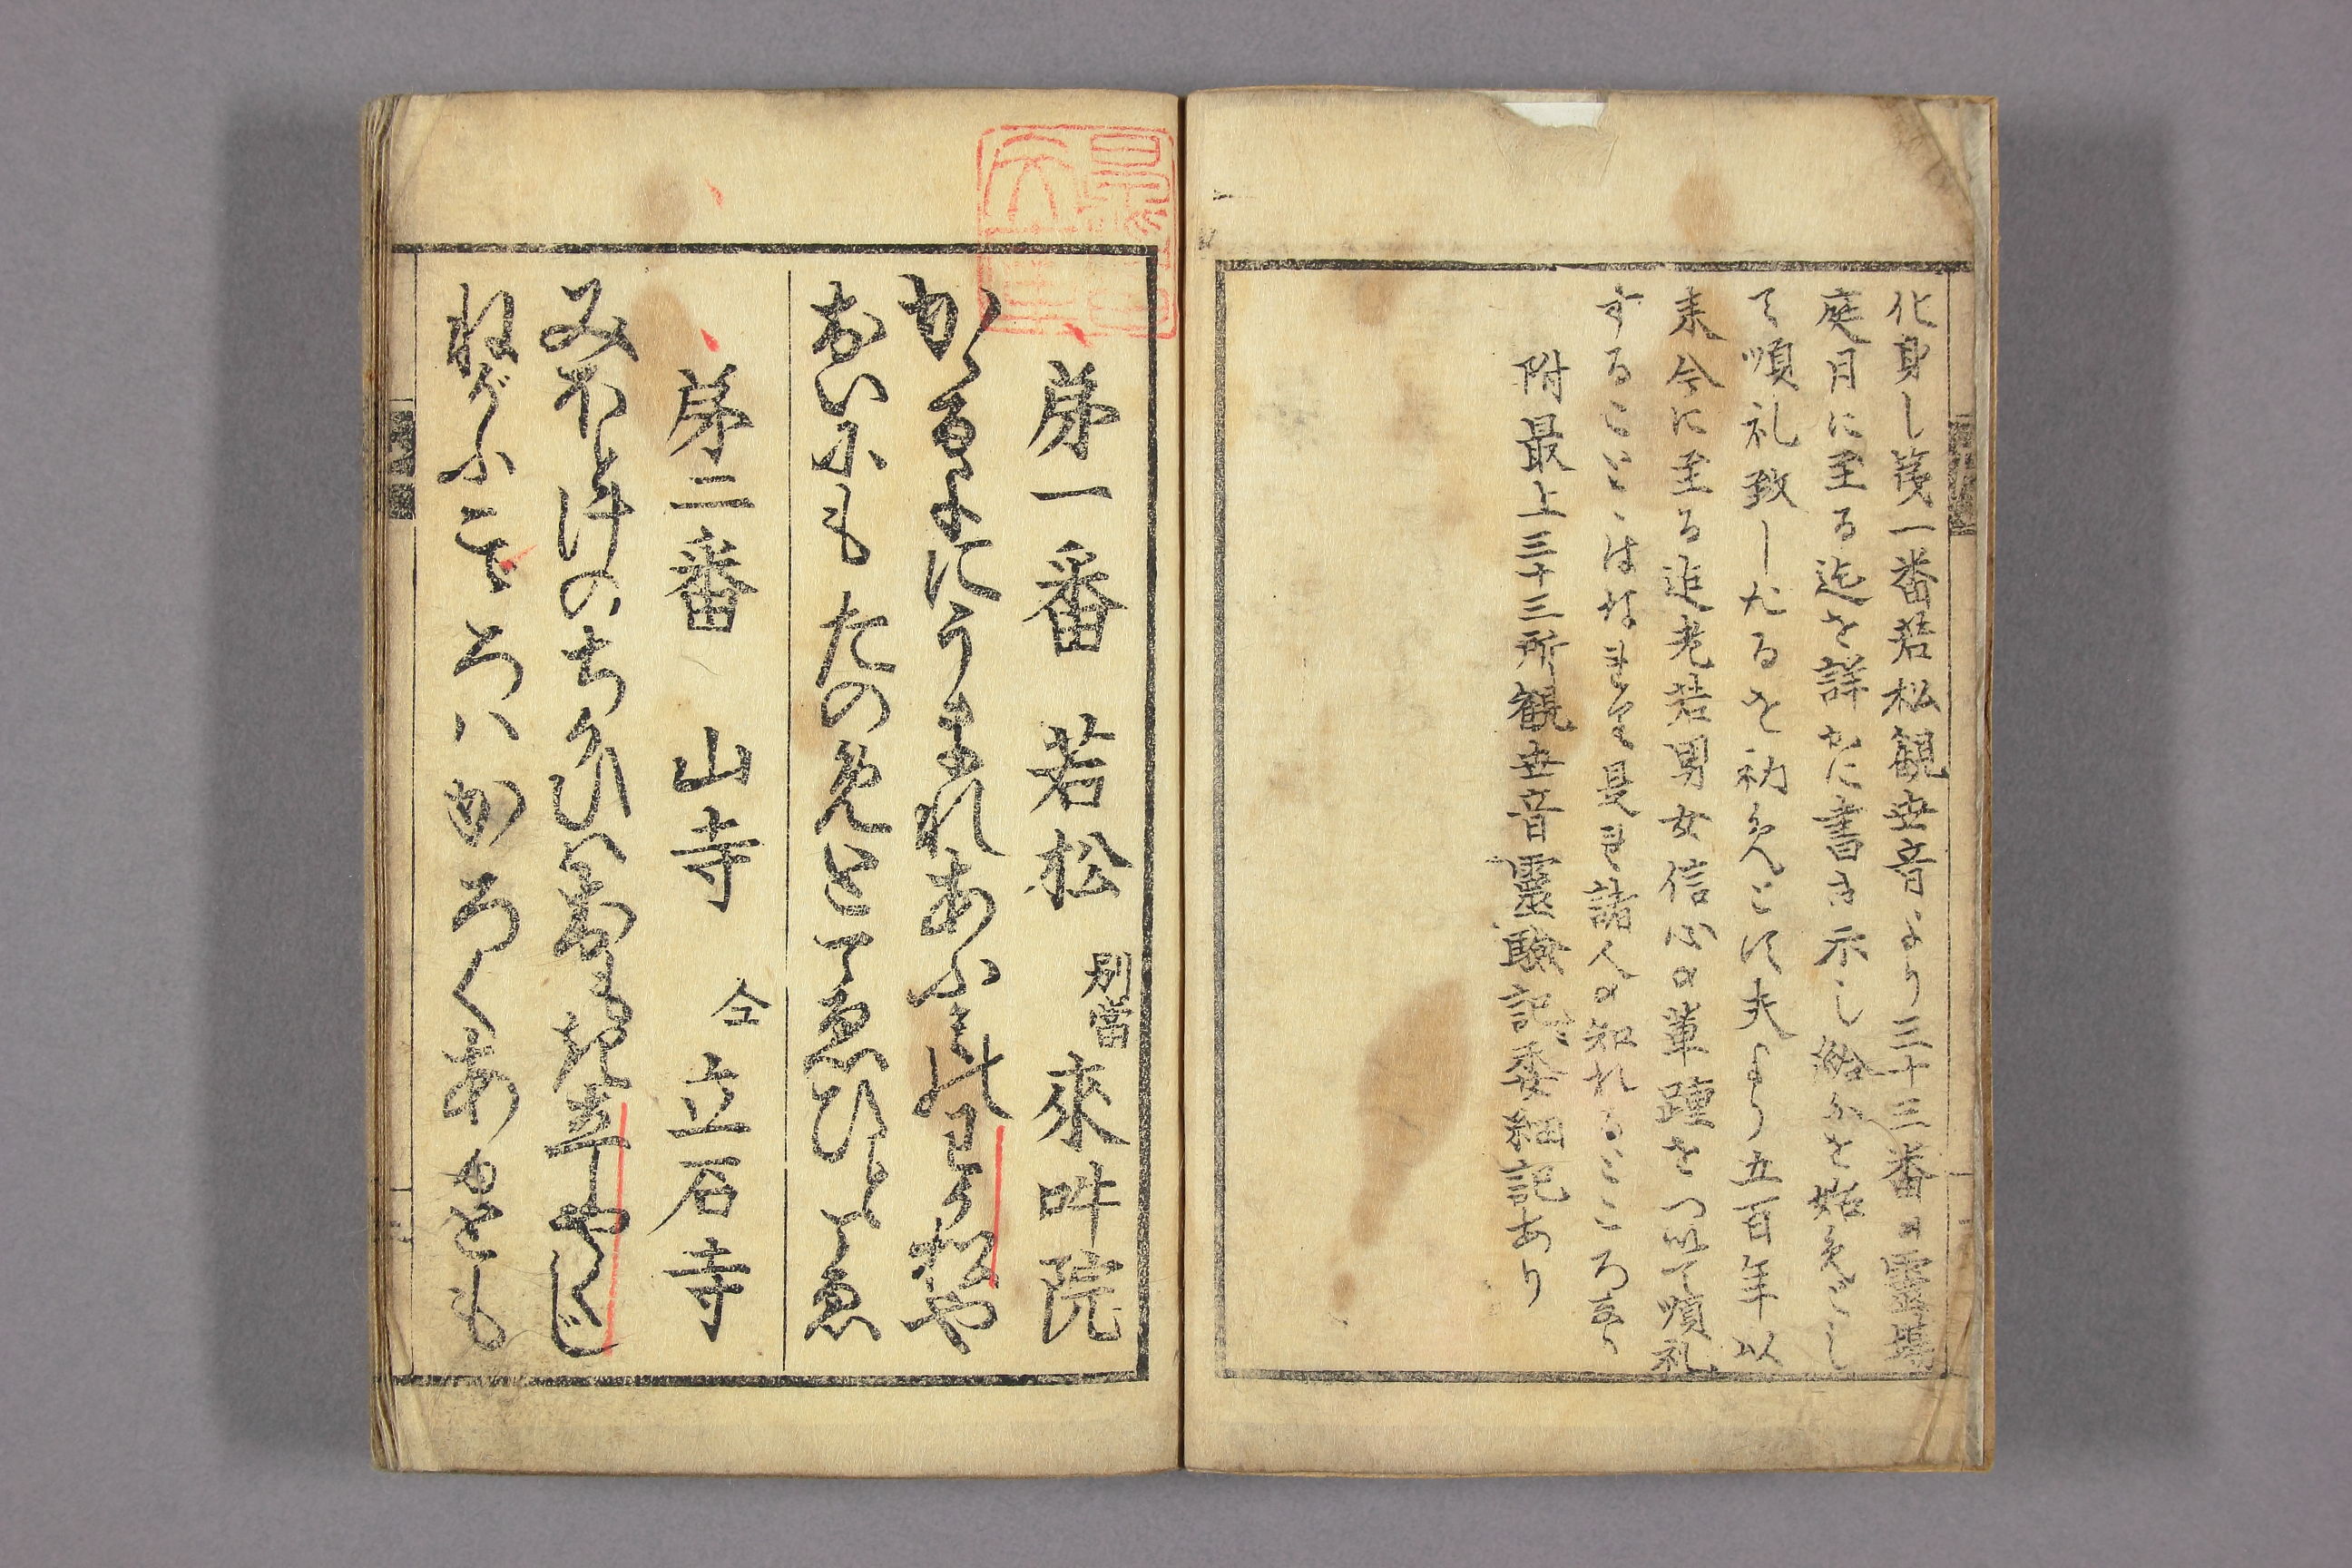 化身し筏一番若松観世音より三十三番の霊場
庭月に至る迄を詳かに書き示し給ふを始めとし
て順礼致したるを初めとす夫より五百年以
来今に至る迄老若男女信心の輩踵をついて順礼
することとはなれり是れ諸人の知れるところなり
附最上三十三所観世音霊験記委細記あり
第一番 若松 別當 來吽院
かくるよにうまれあふみのわか松や
おいにもたのめとこゑひとこゑ
第二番 山寺 仝 立石寺
みほとけのちかひは
ねがふこころはかろくあゆめとも